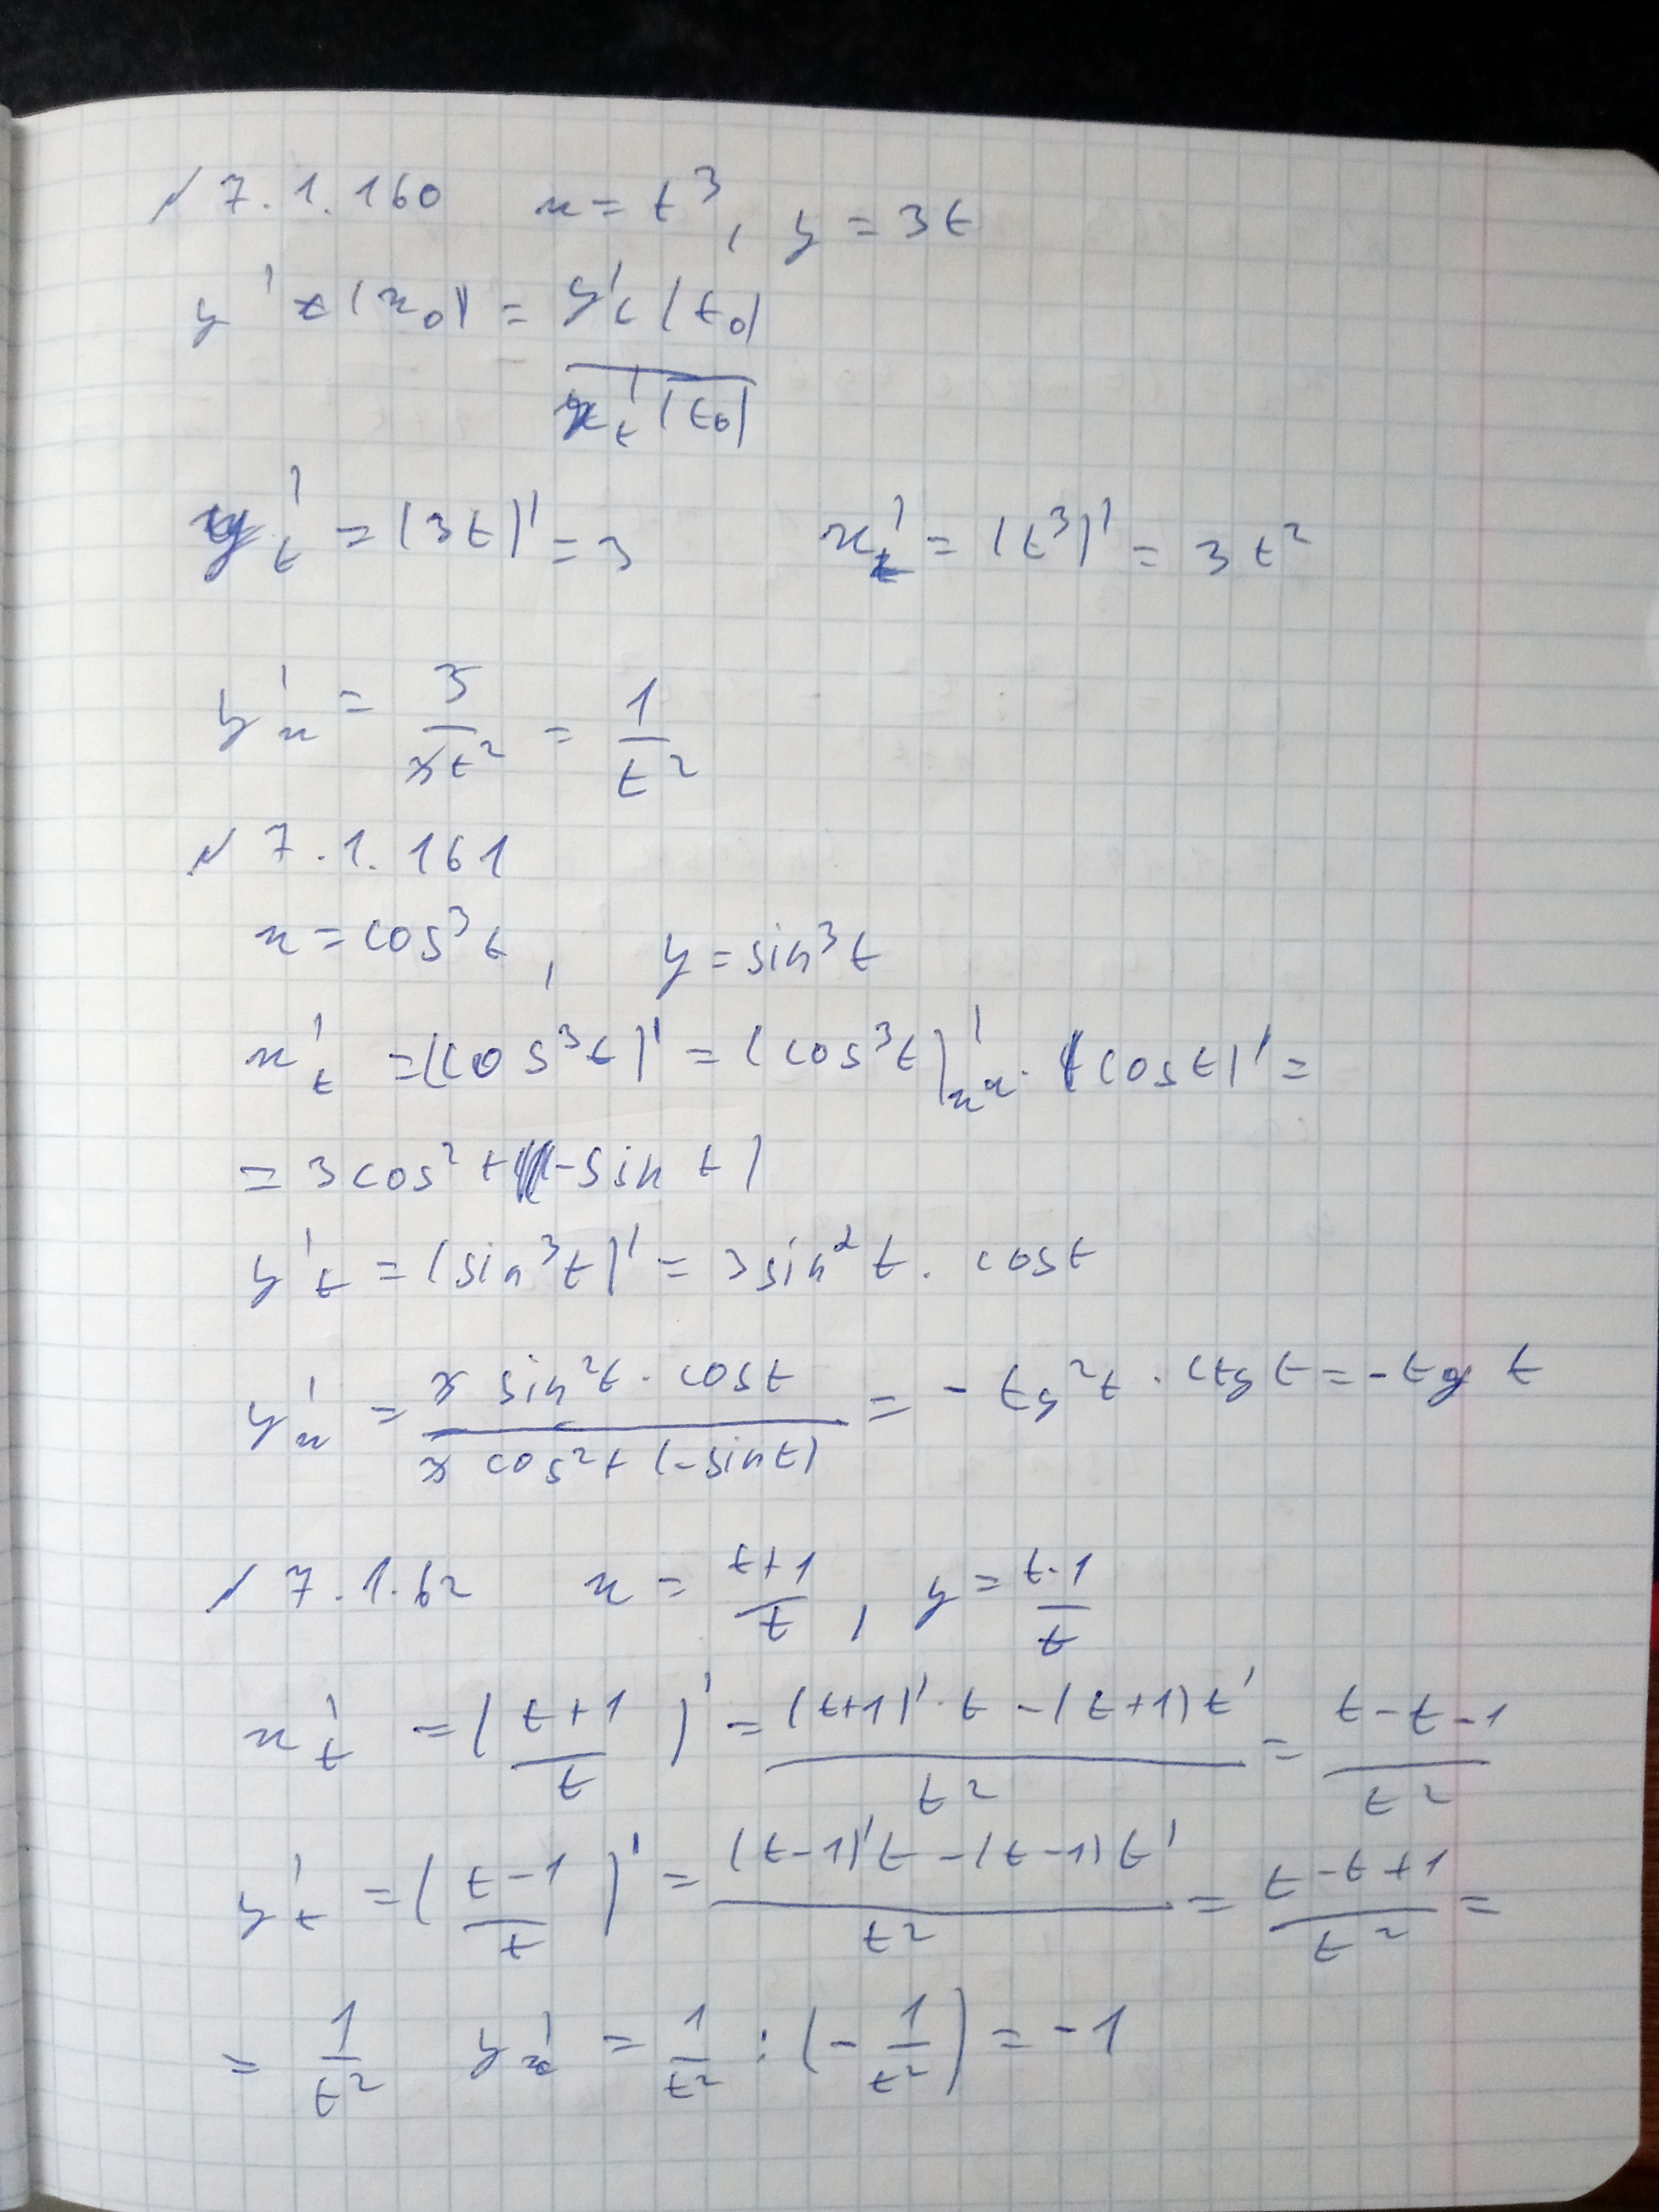 № 7.1.160 x = t³, y = 3t
y'ₓ(x₀) = y'ₜ(t₀) / x'ₜ(t₀)
y'ₜ = (3t)' = 3 x'ₜ = (t³)' = 3t²
y'ₓ = 3/3t² = 1/t²
№ 7.1.161
x = cos³t, y = sin³t
x'ₜ = (cos³t)' = (cos³t)'ₓ · (cos t)' =
= 3cos²t(-sin t)
y'ₜ = (sin³t)' = 3sin²t · cos t
y'ₓ = 3 sin²t · cos t / 3 cos²t (-sin t) = - tg²t · ctg t = - tg t
№ 7.1.62 x = (t+1)/t, y = (t-1)/t
x'ₜ = ((t+1)/t)' = ((t+1)' · t - (t+1)t')/t² = (t-t-1)/t²
y'ₜ = ((t-1)/t)' = ((t-1)'t - (t-1)t')/t² = (t-t+1)/t² =
= 1/t² y'ₓ = 1/t² : (- 1/t²) = -1